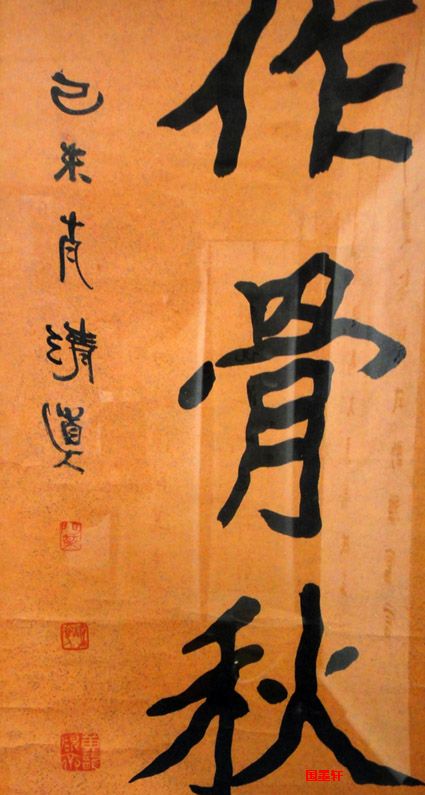 作骨秋
己未清道人
国墨轩